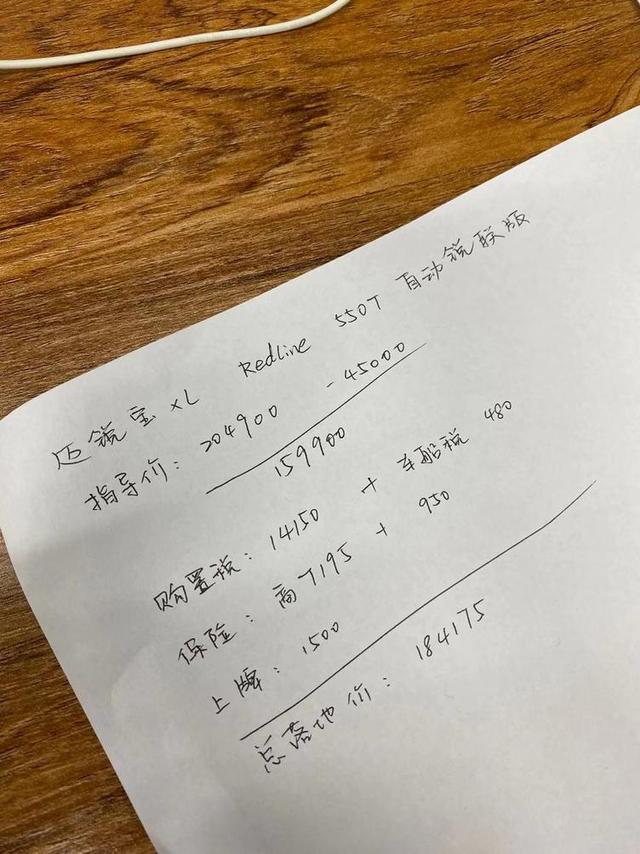 迈锐宝XL Redline 550T 自动锐联版
指导价: 204900 - 45000
159900
购置税: 14150 + 车船税 480
保险: 商7195 + 950
上牌: 1500
总落地价: 184175